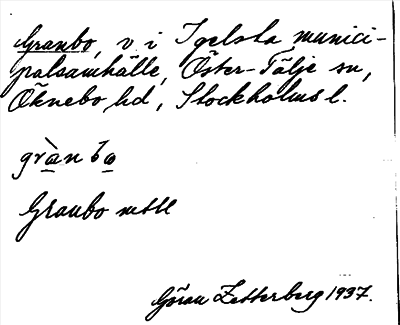 Granbo, v i Igelsta munici-
palsamhälle, Öster-Tälje sn,
Öknebo hd, Stockholms l.
grànbo
Granbo mtbl
Göran Zetterberg 1937.